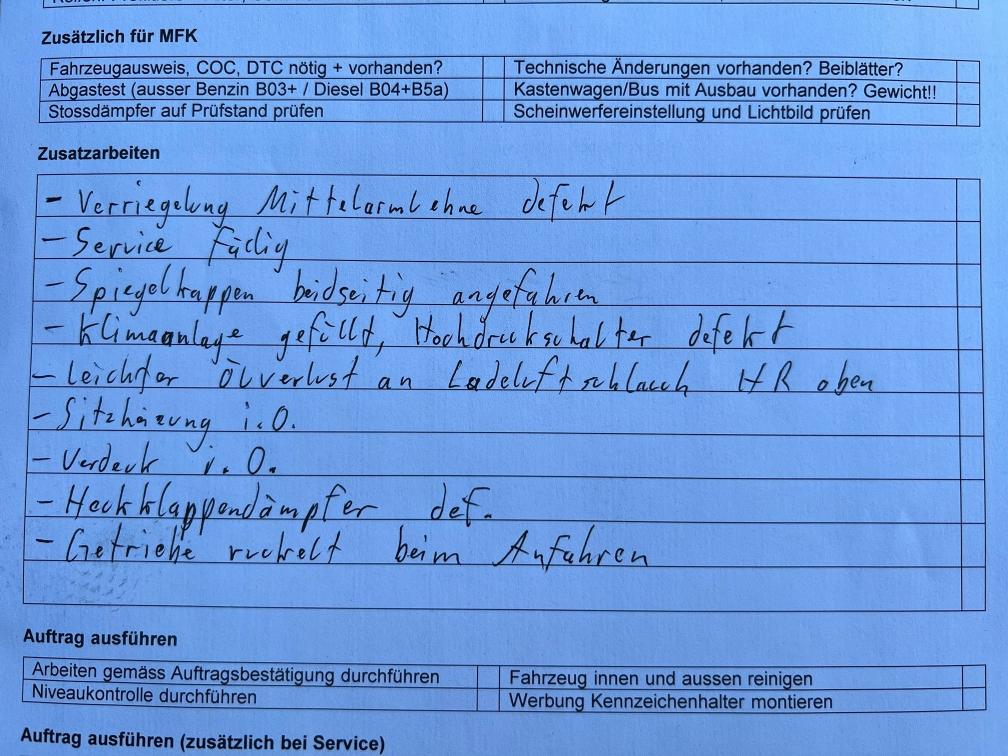 Zusätzlich für MFK
Fahrzeugausweis, COC, DTC nötig + vorhanden? Technische Änderungen vorhanden? Beiblätter?
Abgastest (ausser Benzin B03+ / Diesel B04+B5a) Kastenwagen/Bus mit Ausbau vorhanden? Gewicht!!
Stossdämpfer auf Prüfstand prüfen Scheinwerfereinstellung und Lichtbild prüfen
Zusatzarbeiten
- Verriegelung Mittelarmlehne defekt
- Service fällig
- Spiegelkappen beidseitig angefahren
- Klimaanlage gefüllt, Hochdruckschalter defekt
- leichter Ölverlust an Ladeluftschlauch HR oben
- Sitzheizung i.O.
- Verdeck i.O.
- Heckklappendämpfer def.
- Getriebe ruckelt beim Anfahren
Auftrag ausführen
Arbeiten gemäss Auftragsbestätigung durchführen Fahrzeug innen und aussen reinigen
Niveaukontrolle durchführen Werbung Kennzeichenhalter montieren
Auftrag ausführen (zusätzlich bei Service)